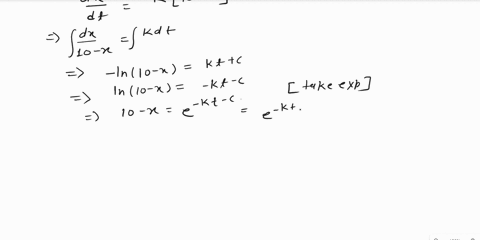 dt =
=> ∫ dx/10-x = ∫ Kdt
=> -ln(10-x) = Kt+c
=> ln(10-x) = -Kt-c [take exp]
=> 10-x = e^-Kt-c = e^-Kt.